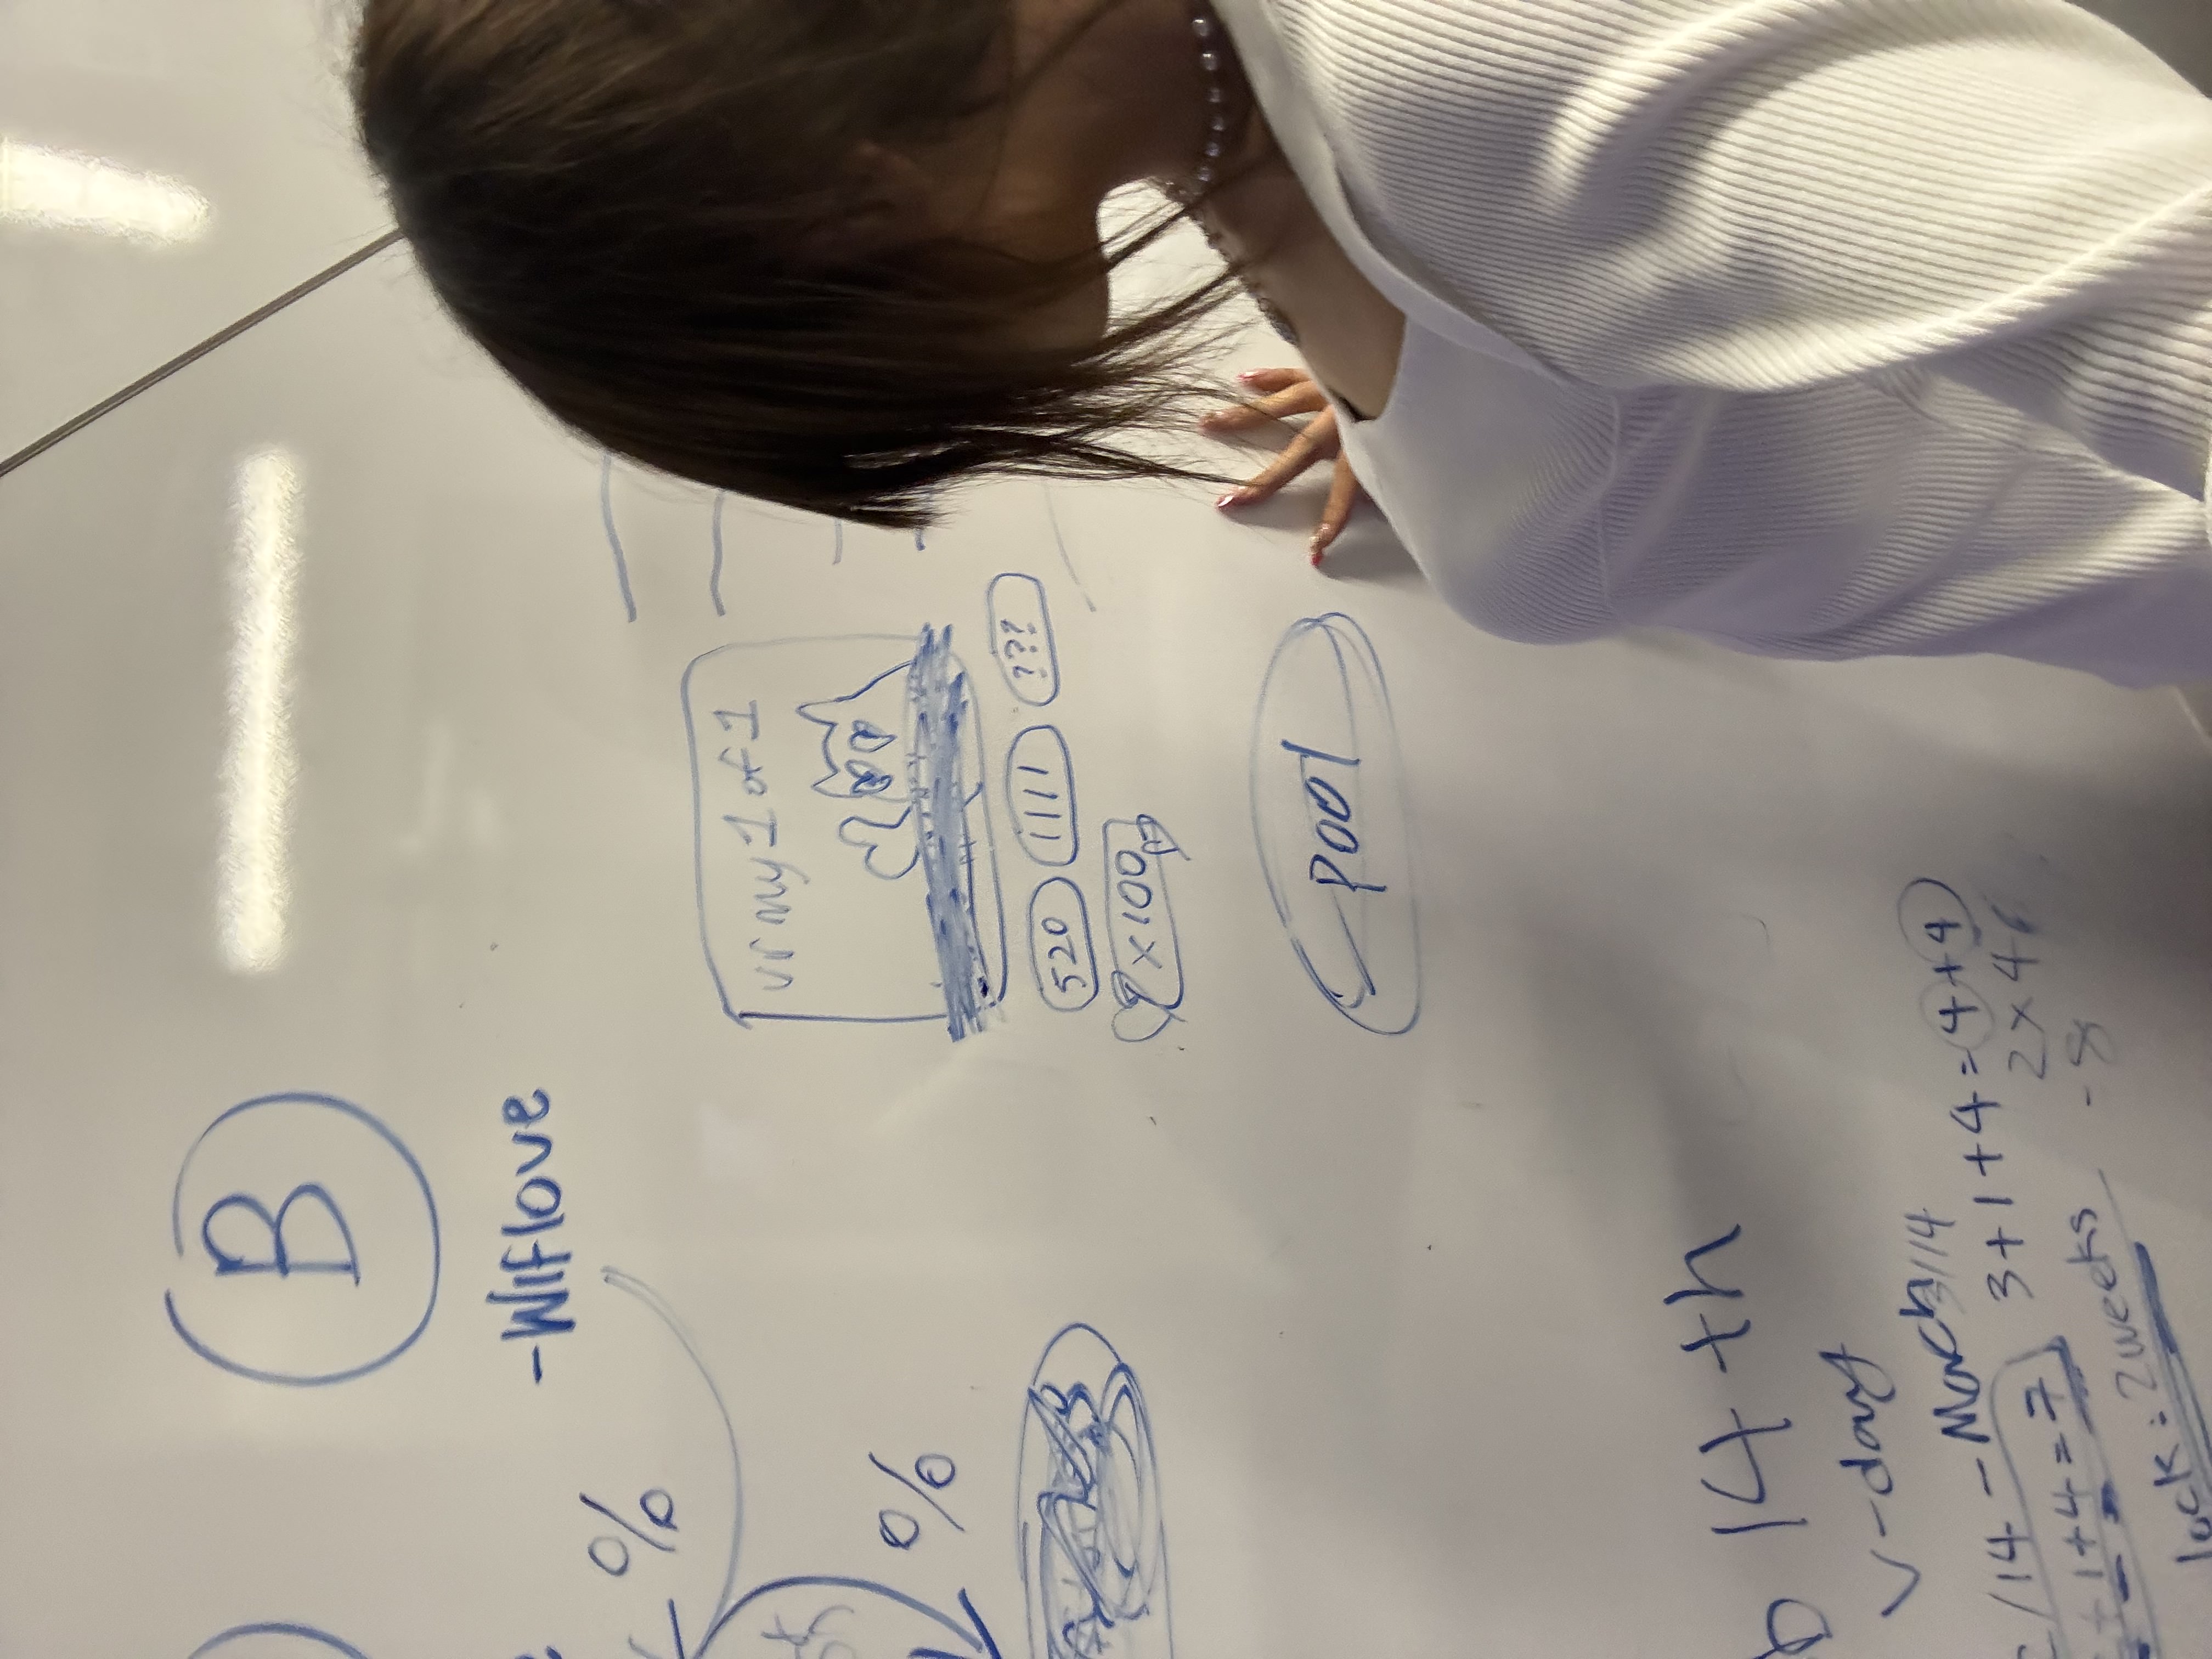 B
-Wiflove
%
ur my 1 of 1
%
520 1111 ???
x100
pool
14th
V-day
/14 - March 3/14
3+1+4=4+4
+1+4=7
2x4
-8
lock: 2weeks